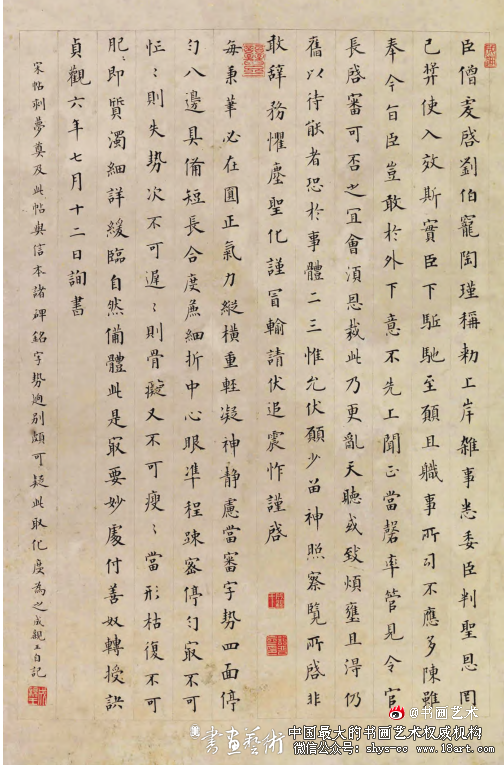 臣僧虔啓劉伯寵陶瑾稱勅上岸雜事悉委臣判聖恩罔
已弊使入效斯實臣下駈馳至願且職事所司不應多陳雖
奉今旨臣豈敢於外下意不先上聞正當罄率管見令官
長啓審可否之宜會須恩裁此乃更亂天聽或致煩壅且得仍
舊以待能者恐於事體二三惟允伏願少留神照察覽所啓非
敢辞務懼塵聖化謹冒輸請伏追震怍謹啓
每秉筆必在圓正氣力縱橫重輕凝神静慮當審字勢四面停
勻八邊具備短長合度麁細折中心眼凖程踈密停勻㝡不可
忙〻則失勢次不可遲〻則骨癡又不可瘦〻當形枯復不可
肥〻即質濁細詳緩臨自然備體此是㝡要妙處付善奴轉授訣
貞觀六年七月十二日詢書
宋帖刻夢奠及此帖與信本諸碑銘字勢迥别頗可疑此取化度為之成親王自記
@书画艺术
書畫藝術
中国最大的书画艺术权威机构
微信公众号：shys-cc www.18art.com